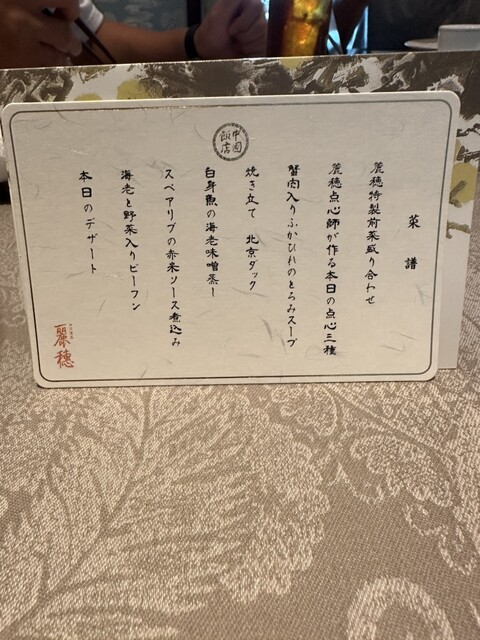 中国飯店
菜譜
麗穂特製前菜盛り合わせ
麗穂点心師が作る本日の点心三種
蟹肉入りふかひれのとろみスープ
焼き立て 北京ダック
白身魚の海老味噌蒸し
スペアリブの赤米ソース煮込み
海老と野菜入りビーフン
本日のデザート
麗穂